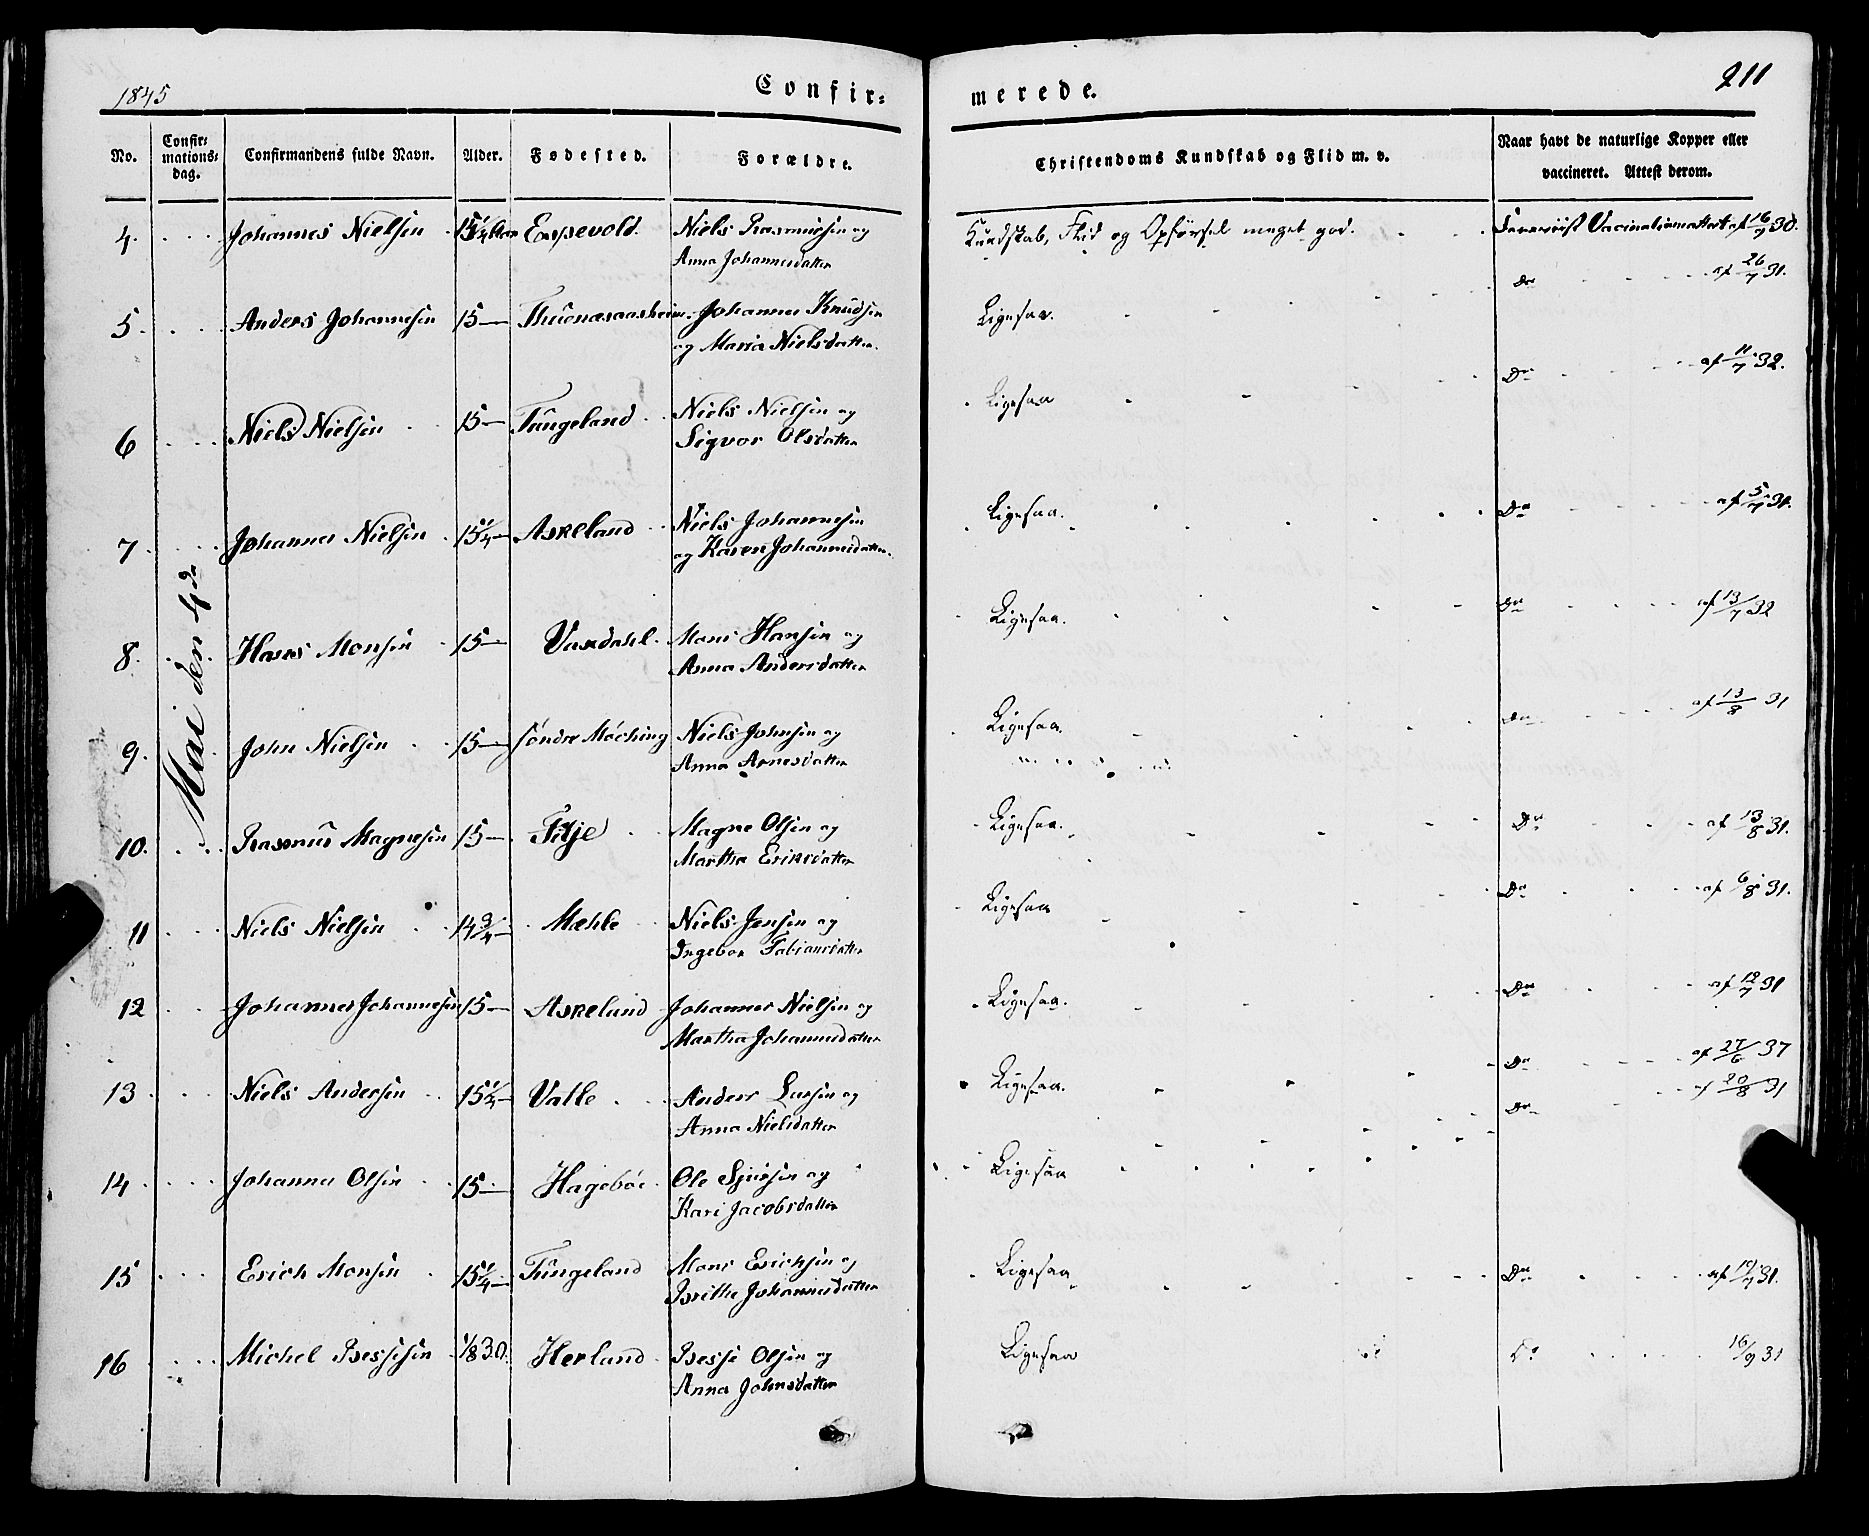 1845
Confir=
merede.
211
No.
Confir=
mations=
dag.
Confirmandens fulde Navn.
Alder.
Fødested.
Forældre.
Christendoms Kundskab og Flid m. v.
Naar havt de naturlige Kopper eller
vaccineret. Attest derom.
Mai den 4de
4. Johannes Nielsen 15 1/4 Aar Espevold. Niels Rasmussen og
Anna Johannesdatter
Kundskab, Flid og Opførsel meget god. Foreviist Vaccinationsattest af 16/9 30.
5. Anders Johannesen 15 Johannes Knudsen
og Maria Nielsdatter.
Ligesaa. Do af 26/7 31.
6 Niels Nielsen 15 Tungeland Niels Nielsen og
Sigvor Olsdatter
Ligesaa Do af 11/7 32.
7. Johannes Nielsen 15 1/4 Askeland Niels Johannesen
og Karen Johannesdatter.
Ligesaa. Do af 5/7 31.
8. Hans Monsen 15 Vardahl. Mons Hansen og
Anna Andersdatter
Ligesaa. Do af 13/7 32
9. John Nielsen 15 søndre Møching Niels Johnsen og
Anna Arnesdatter
Ligesaa. Do af 13/8 31
10. Rasmus Magnesen 15 Fitje Magne Olsen og
Martha Eriksdatter
Ligesaa. Do af 13/8 31.
11 Niels Nielsen 14 3/4 Mæhle Niels Jensen og
Ingebor Fabiansdatter
Ligesaa Do af 6/8 31.
12 Johannes Johannesen 15 Askeland Johannes Nielsen og
Martha Johannesdatter
Ligesaa. Do af 12/7 31
13 Niels Andersen 15 1/2 Valle Anders Larsen og
Anna Nielsdatter
Ligesaa. Do af 27/6 37
14 Johannes Olsen 15 Hagebøe Ole Sjursen og
Kari Jacobsdatter
Ligesaa Do af 20/8 31
15 Erich Monsen 15 1/4 Tungeland Mons Erichsen og
Brithe Johannesdatter
Ligesaa Do af 19/7 31.
16 Michel Bessesen 1/8 30. Herland Besse Olsen og
Anna Johnsdatter
Ligesaa Do 16/9 31